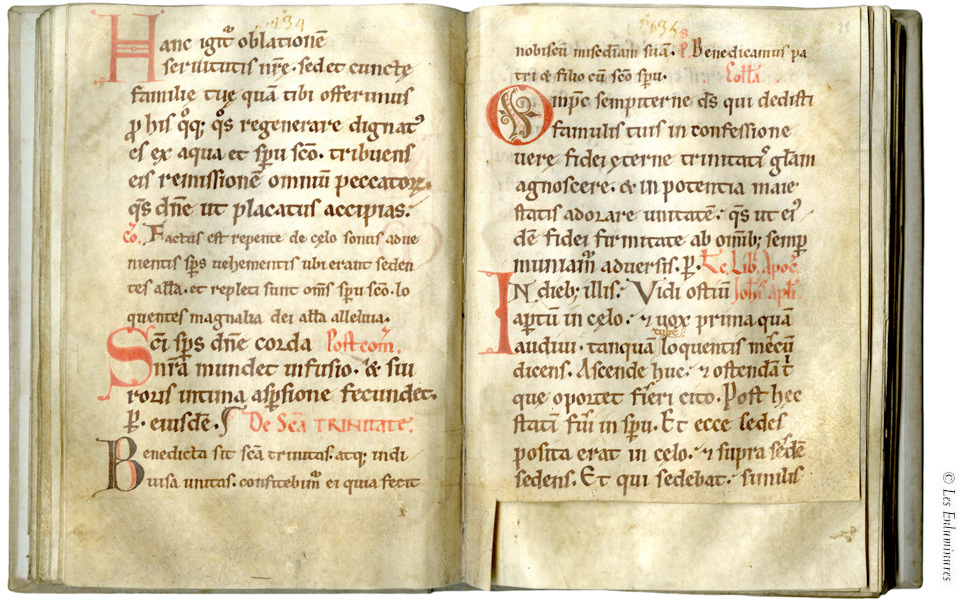 134
Hanc igit᷑ oblationē
seruitutis nr̄e. sed et cunctę
familię tuę quā tibi offerimus
ꝓ his qͦq; qͦs regenerare dignatꝰ
es ex aqua et sp̄u sc̄o. tribuens
eis remissionē omniū peccatoꝝ.
qs̄ dn̄e ut placatus accipias.
Co. Factus est repente de cęlo sonus adue
nientis sp̄s uehementis ubi erant seden
tes all̄a. et repleti sunt om̄s sp̄u sc̄o. lo
quentes magnalia dei all̄a alleluia.
Sc̄i sp̄s dn̄e corda Postcom̄.
nr̄a mundet infusio. & sui
roris intima asp̄sione fecundet.
P̱. eiusdē. De Sc̄a TRINITATE.
Benedicta sit sc̄a trinitas. atq; indi
uisa unitas. confitebim᷑ ei quia fecit
135 28
nobiscū mis̄ediam suā. Ps̄. Benedicamus pa
tri & filio cū sc̄o sp̄u. Coll̄a
Omp̄c sempiterne ds̄ qui dedisti
famulis tuis in confessione
uere fidei ęterne trinitatꝰ gl̄am
agnoscere. & in potentia maie
statis adorare unitatē. qs̄ ut eiꝰ
dē fidei firmitate ab om̄ib; semp̱
muniam᷑ aduersis. p̱. Lc̄. Lib. Apoc̄.
IN dieb; illis. Vidi ostiū Joh̄is ap̄li
ap̱tum in cęlo. & uox prima quā
audiui. tanquā tubę loquentis mecū
dicens. Ascende huc. & ostendā t̄
que oportet fieri cito. Post hec
statī fui in sp̄u. Et ecce sedes
posita erat in celo. & supra sedē
sedens. Et qui sedebat. similis
© Les Enluminures